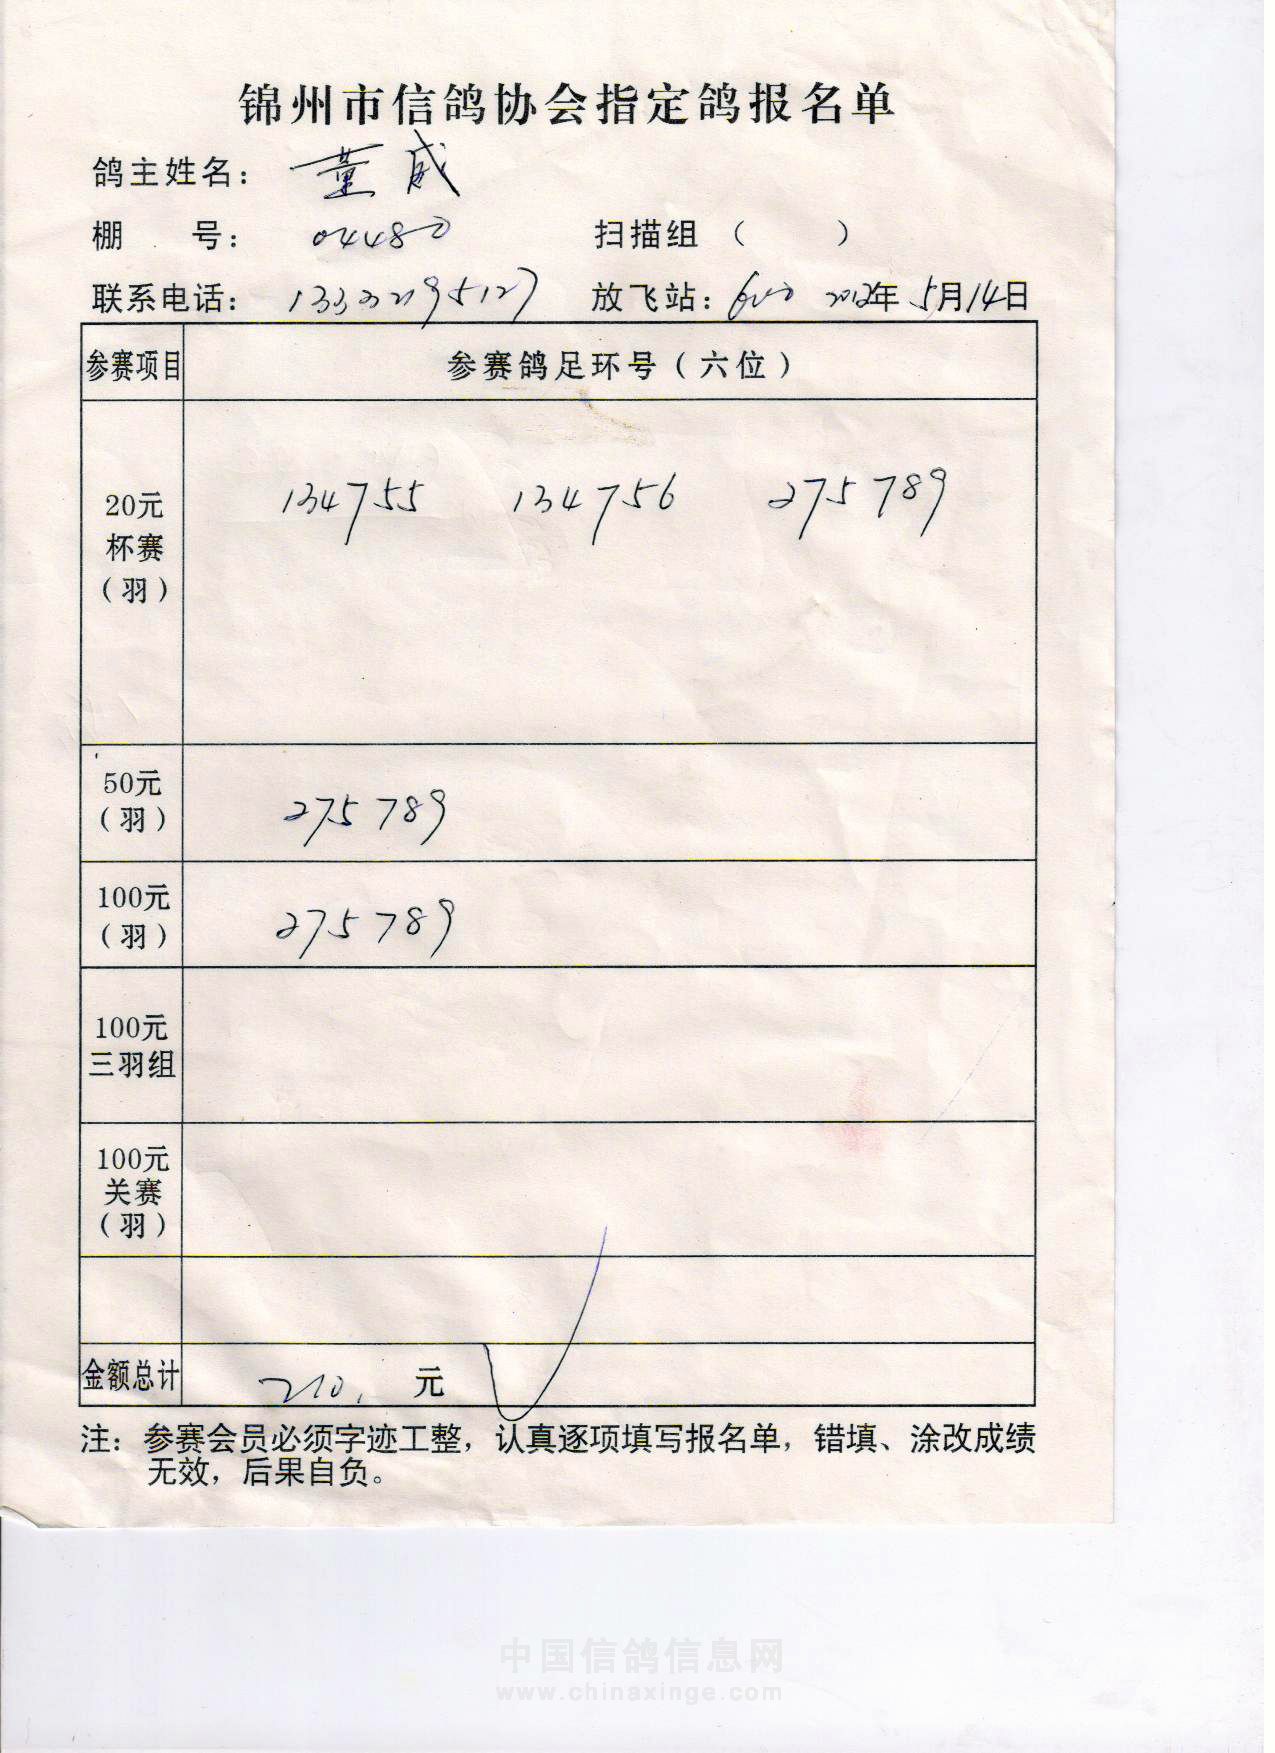 锦州市信鸽协会指定鸽报名单
鸽主姓名： 董威
棚 号： 04480 扫描组 （ ）
联系电话： 13322195127 放飞站： 600 2012年 5月14日
参赛项目 参赛鸽足环号（六位）
20元
杯赛
（羽） 134755 134756 275789
50元
（羽） 275789
100元
（羽） 275789
100元
三羽组
100元
关赛
（羽）
金额总计 210. 元
注：参赛会员必须字迹工整，认真逐项填写报名单，错填、涂改成绩
无效，后果自负。
中国信鸽信息网
www.chinaxinge.com